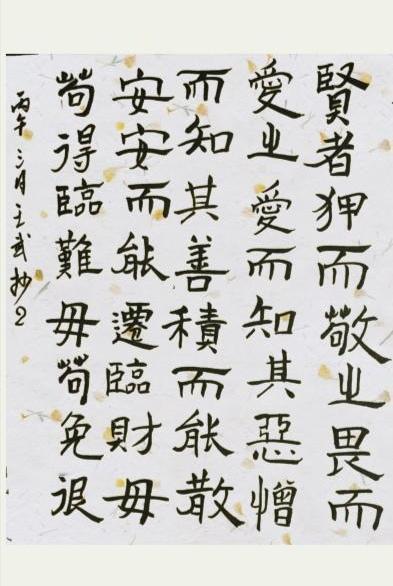 賢者狎而敬之畏而
愛之愛而知其惡憎
而知其善積而能散
安安而能遷臨財毋
苟得臨難毋苟免很
丙午三月王武抄2